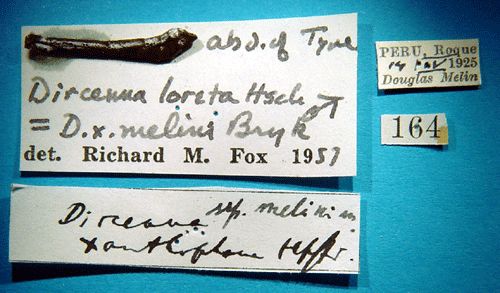 abd. of Type
Dircenna loreta Hsch ♂
= D. x. melini Bryk
det. Richard M. Fox 1957
Dircenna sp. melini m
xanthophane Hpffr.
PERU, Roque
14 1925
Douglas Melin
164